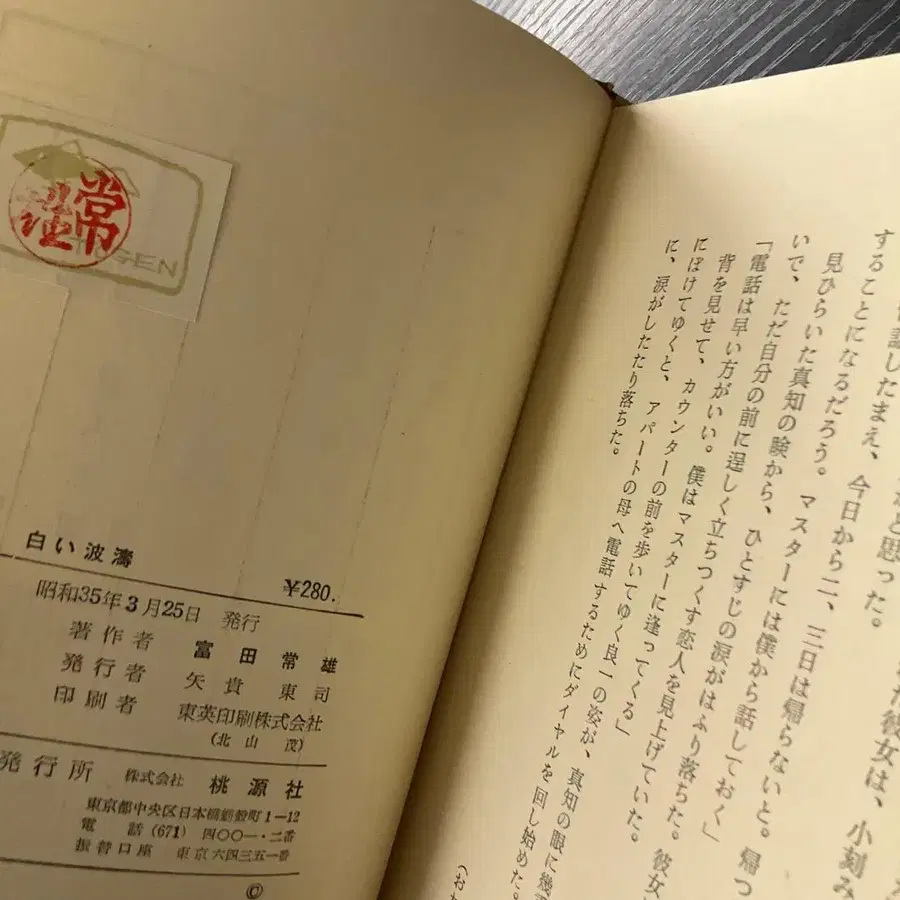 話したまえ、今日から二、三日は帰らないと。帰つ
することになるだろう。マスターには僕から話しておく」
見ひらいた真知の瞼から、ひとすじの涙がはふり落ちた。彼女
いで、ただ自分の前に逞しく立ちつくす恋人を見上げていた。
「電話は早い方がいい。僕はマスターに逢ってくる」
背を見せて、カウンターの前を歩いてゆく良一の姿が、真知の眼に幾
にぼけてゆくと、アパートの母へ電話するためにダイヤルを回し始めた。
に、涙がしたたり落ちた。
と思った。
彼女は、小刻み
(お
常雄
GEN
白い波濤
¥280.
昭和35年3月25日 発行
著作者 富田常雄
発行者 矢貴東司
印刷者 東英印刷株式会社
(北山茂)
発行所 株式会社 桃源社
東京都中央区日本橋蛎殻町1-12
電話(671)四〇〇一・二番
振替口座 東京六四三五一番
©